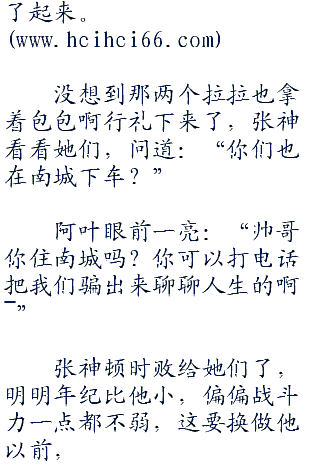 了起来。
(www.hcihci66.com)
没想到那两个拉拉也拿
着包包啊行礼下来了，张神
看看她们，问道：“你们也
在南城下车？”
阿叶眼前一亮：“帅哥
你住南城吗？你可以打电话
把我们骗出来聊聊人生的啊
~”
张神顿时败给她们了，
明明年纪比他小，偏偏战斗
力一点都不弱，这要换做他
以前，